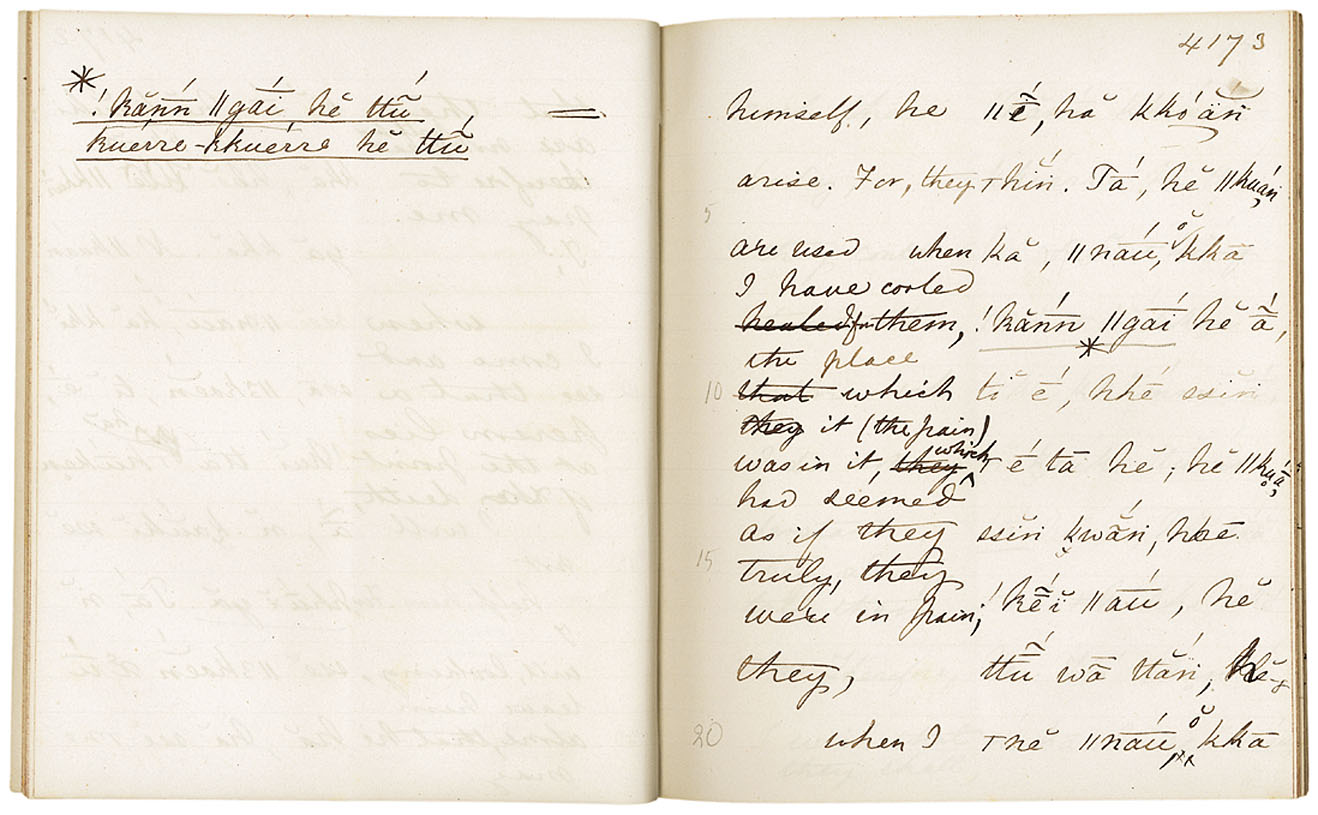 *
!kănn ||gái, hĕ ttú̃,
kuérre-kkuérre hĕ ttú̃
4173
himself, he ||é̃, hă kkóăṅ
arise. For, they ꞁhíṅ. Tá, hĕ ||kuáṅ,
5
are used when kă, ||náú, kkā
I have cooled
healed for them, !kánn ||gái hĕ ā́,
*
the place
10 that which tĭ é, hhé ssiṅ
they it (the pain)
was in it, they which é tā hĕ; hĕ ||kuáṅ,
had seemed
as if they ssiṅ kwắṅ, hhé
15 truly, they
were in pain; !kḗĭ ||áú, hĕ
they, ttú̃ wā ttắṅ, hĕ
20 when I ꞁnĕ ||náú, kkā